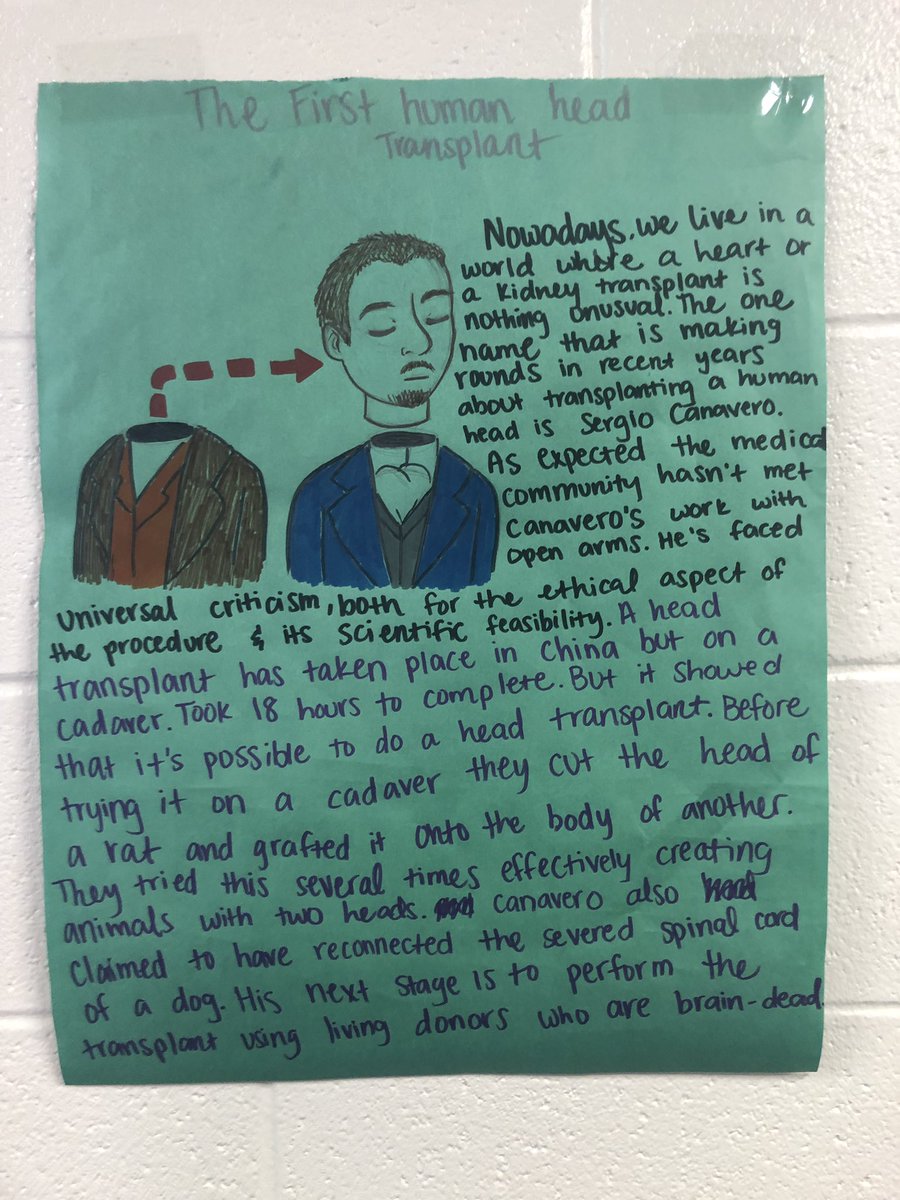 The First human head
Transplant
Nowadays, we live in a
world where a heart or
a kidney transplant is
nothing unusual. The one
name that is making
rounds in recent years
about transplanting a human
head is Sergio Canavero.
As expected the medical
community hasn't met
Canavero's work with
open arms. He's faced
universal criticism, both for the ethical aspect of
the procedure & its scientific feasibility. A head
transplant has taken place in China but on a
cadaver. Took 18 hours to complete. But it showed
that it's possible to do a head transplant. Before
trying it on a cadaver they cut the head of
a rat and grafted it onto the body of another.
They tried this several times effectively creating
animals with two heads. Canavero also
claimed to have reconnected the severed spinal cord
of a dog. His next stage is to perform the
transplant using living donors who are brain-dead.